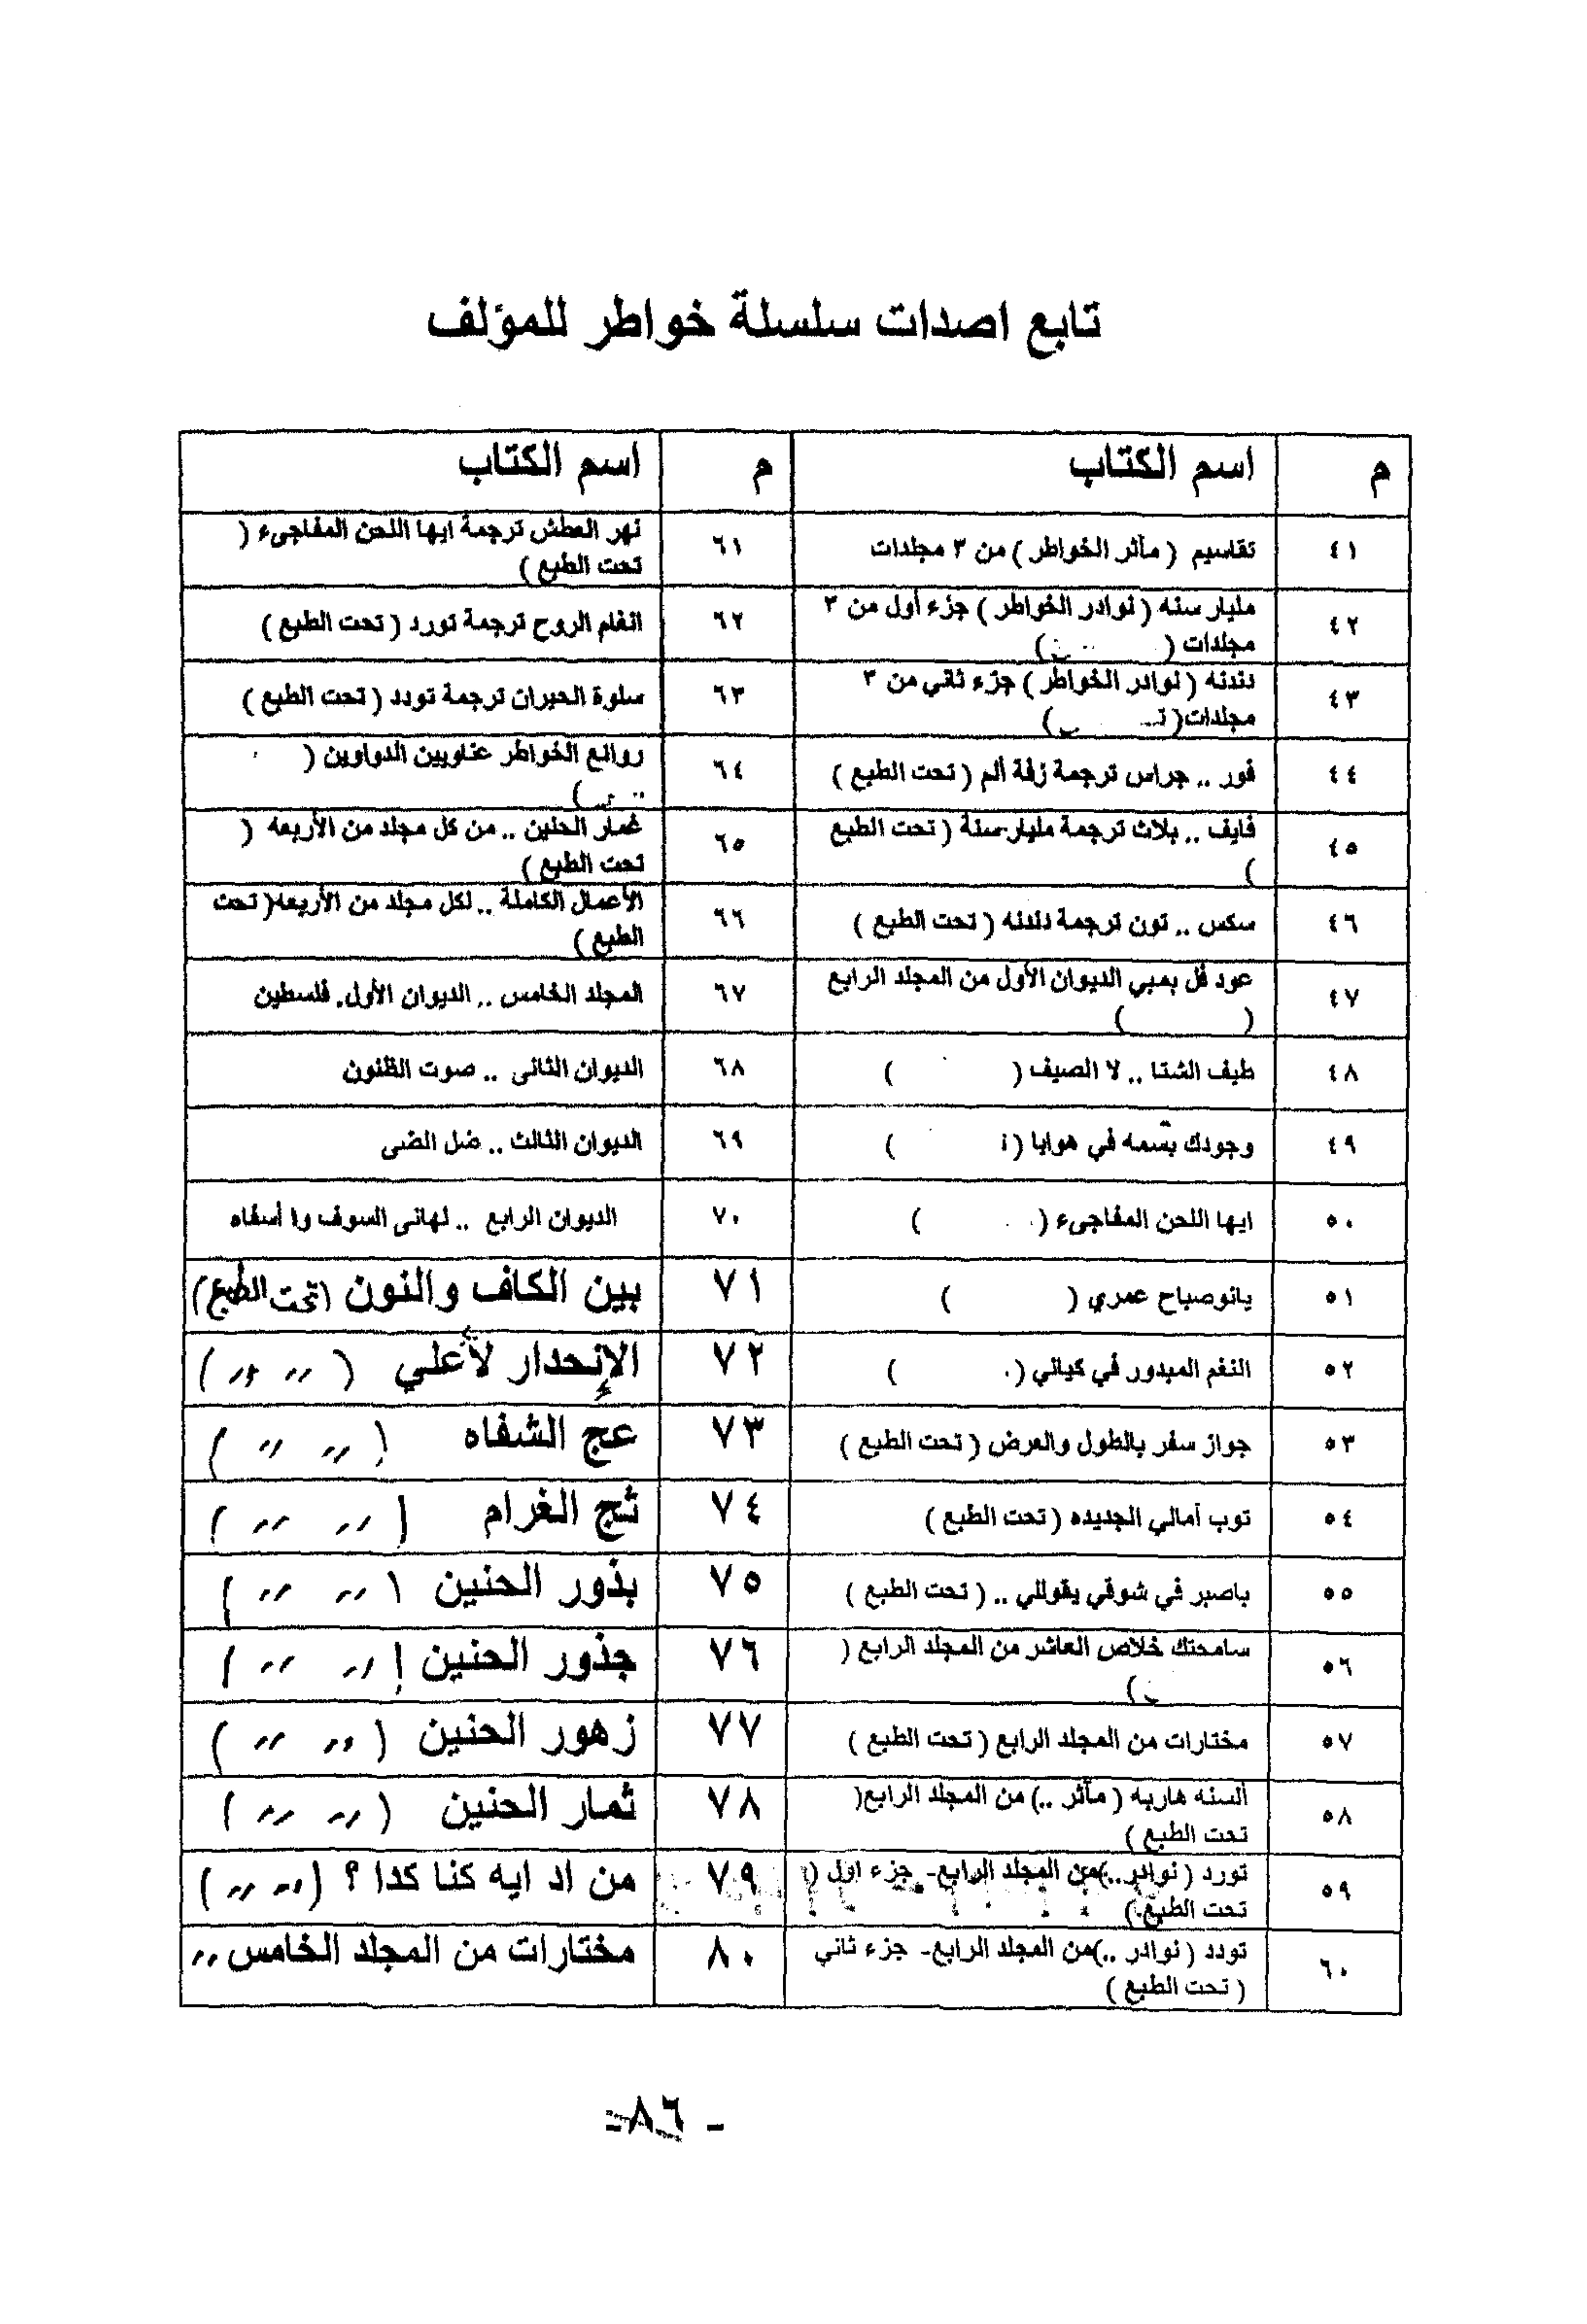 تابع اصدات سلسلة خواطر للمؤلف
م اسم الكتاب م اسم الكتاب
٤١ تقاسيم ( مآثر الخواطر ) من ٣ مجلدات ٦١ نهر العطش ترجمة ايها اللحن المفاجىء (
تحت الطبع )
٤٢ مليار سنه ( نوادر الخواطر ) جزء أول من ٣
مجلدات ( )
٦٢ انغام الروح ترجمة تورد ( تحت الطبع )
٤٣ دندنه ( نوادر الخواطر ) جزء ثاني من ٣
مجلدات( )
٦٣ سلوة الحيران ترجمة تودد ( تحت الطبع )
٤٤ فور .. جراس ترجمة زفة ألم ( تحت الطبع )
٦٤ روائع الخواطر عناويين الدواوين (
)
٤٥ فايف .. بلاث ترجمة مليار سنة ( تحت الطبع
)
٦٥ غمار الحنين .. من كل مجلد من الأربعه (
تحت الطبع )
٤٦ سكس .. تون ترجمة دندنه ( تحت الطبع )
٦٦ الأعمال الكاملة .. لكل مجلد من الأربعه( تحت
الطبع )
٤٧ عود فل بمبي الديوان الأول من المجلد الرابع
( )
٦٧ المجلد الخامس .. الديوان الأول. فلسطين
٤٨ طيف الشتا .. لا الصيف ( )
٦٨ الديوان الثانى .. صوت الظنون
٤٩ وجودك بسمه في هوايا ( )
٦٩ الديوان الثالث .. ضل الضى
٥٠ ايها اللحن المفاجىء ( )
٧٠ الديوان الرابع .. لهانى السوف وا أسفاه
٥١ يانوصباح عمري ( )
٧١ بين الكاف والنون (تحت الطبع)
٥٢ النغم المبدور في كياني ( )
٧٢ الإنحدار لأعلي ( ,, ,, )
٥٣ جواز سفر بالطول والعرض ( تحت الطبع )
٧٣ عج الشفاه ( ,, ,, )
٥٤ توب أمالي الجديده ( تحت الطبع )
٧٤ ثج الغرام ( ,, ,, )
٥٥ باصبر في شوقي يقوللي .. ( تحت الطبع )
٧٥ بذور الحنين ( ,, ,, )
٥٦ سامحتك خلاص العاشر من المجلد الرابع (
)
٧٦ جذور الحنين ( ,, ,, )
٥٧ مختارات من المجلد الرابع ( تحت الطبع )
٧٧ زهور الحنين ( ,, ,, )
٥٨ ألسنه هاربه ( مآثر ..) من المجلد الرابع(
تحت الطبع )
٧٨ ثمار الحنين ( ,, ,, )
٥٩ تورد ( نوادر ..)من المجلد الرابع- جزء اول (
تحت الطبع )
٧٩ من اد ايه كنا كدا ؟ ( ,, ,, )
٦٠ تودد ( نوادر ..)من المجلد الرابع- جزء ثاني
( تحت الطبع )
٨٠ مختارات من المجلد الخامس ,,
- ٨٦ -